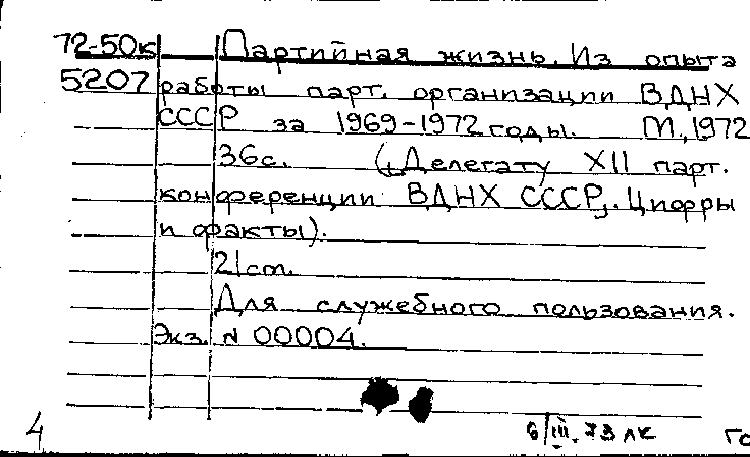 72-50к Партийная жизнь. Из опыта
5207 работы парт. организации ВДНХ
СССР за 1969-1972 годы. М., 1972
36с. (+Делегату XII парт.
конференции ВДНХ СССР,. Цифры
и факты).
21 cm.
Для служебного пользования.
Экз. N 00004.
4 6/III. 73 лк